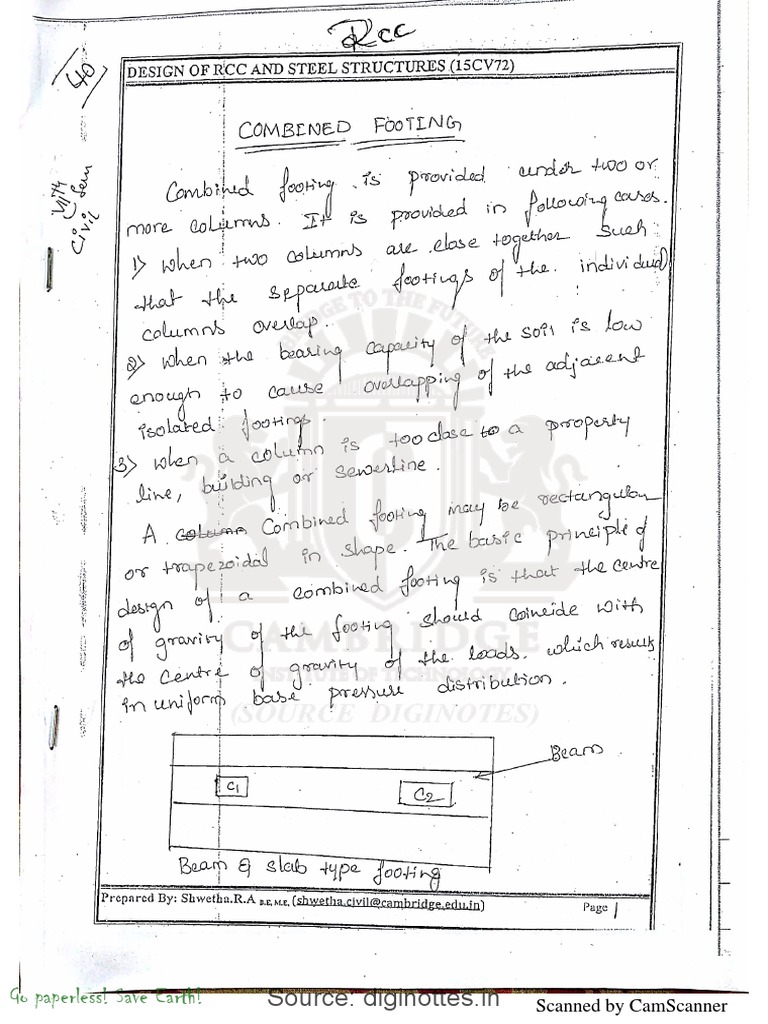 RCC
40
DESIGN OF RCC AND STEEL STRUCTURES (15CV72)
VIIth Sem
Civil
COMBINED FOOTING
Combined footing is provided under two or
more columns. It is provided in following cases.
1) When two columns are close together such
that the separate footings of the individual
columns overlap.
2) When the bearing capacity of the soil is low
enough to cause overlapping of the adjacent
isolated footings.
3) When a column is too close to a property
line, building or sewerline.
A column Combined footing may be rectangular
or trapezoidal in shape. The basic principle of
design of a combined footing is that the centre
of gravity of the footing should coincide with
the centre of gravity of the loads. which results
in uniform base pressure distribution.
BRIDGE TO THE FUTURE
CAMBRIDGE
INSTITUTE OF TECHNOLOGY
(SOURCE DIGINOTES)
Beam
C1
C2
Beam & slab type footing
Prepared By: Shwetha.R.A B.E, M.E, (shwetha.civil@cambridge.edu.in)
Page 1
Go paperless! Save Earth!
Source: diginottes.in
Scanned by CamScanner